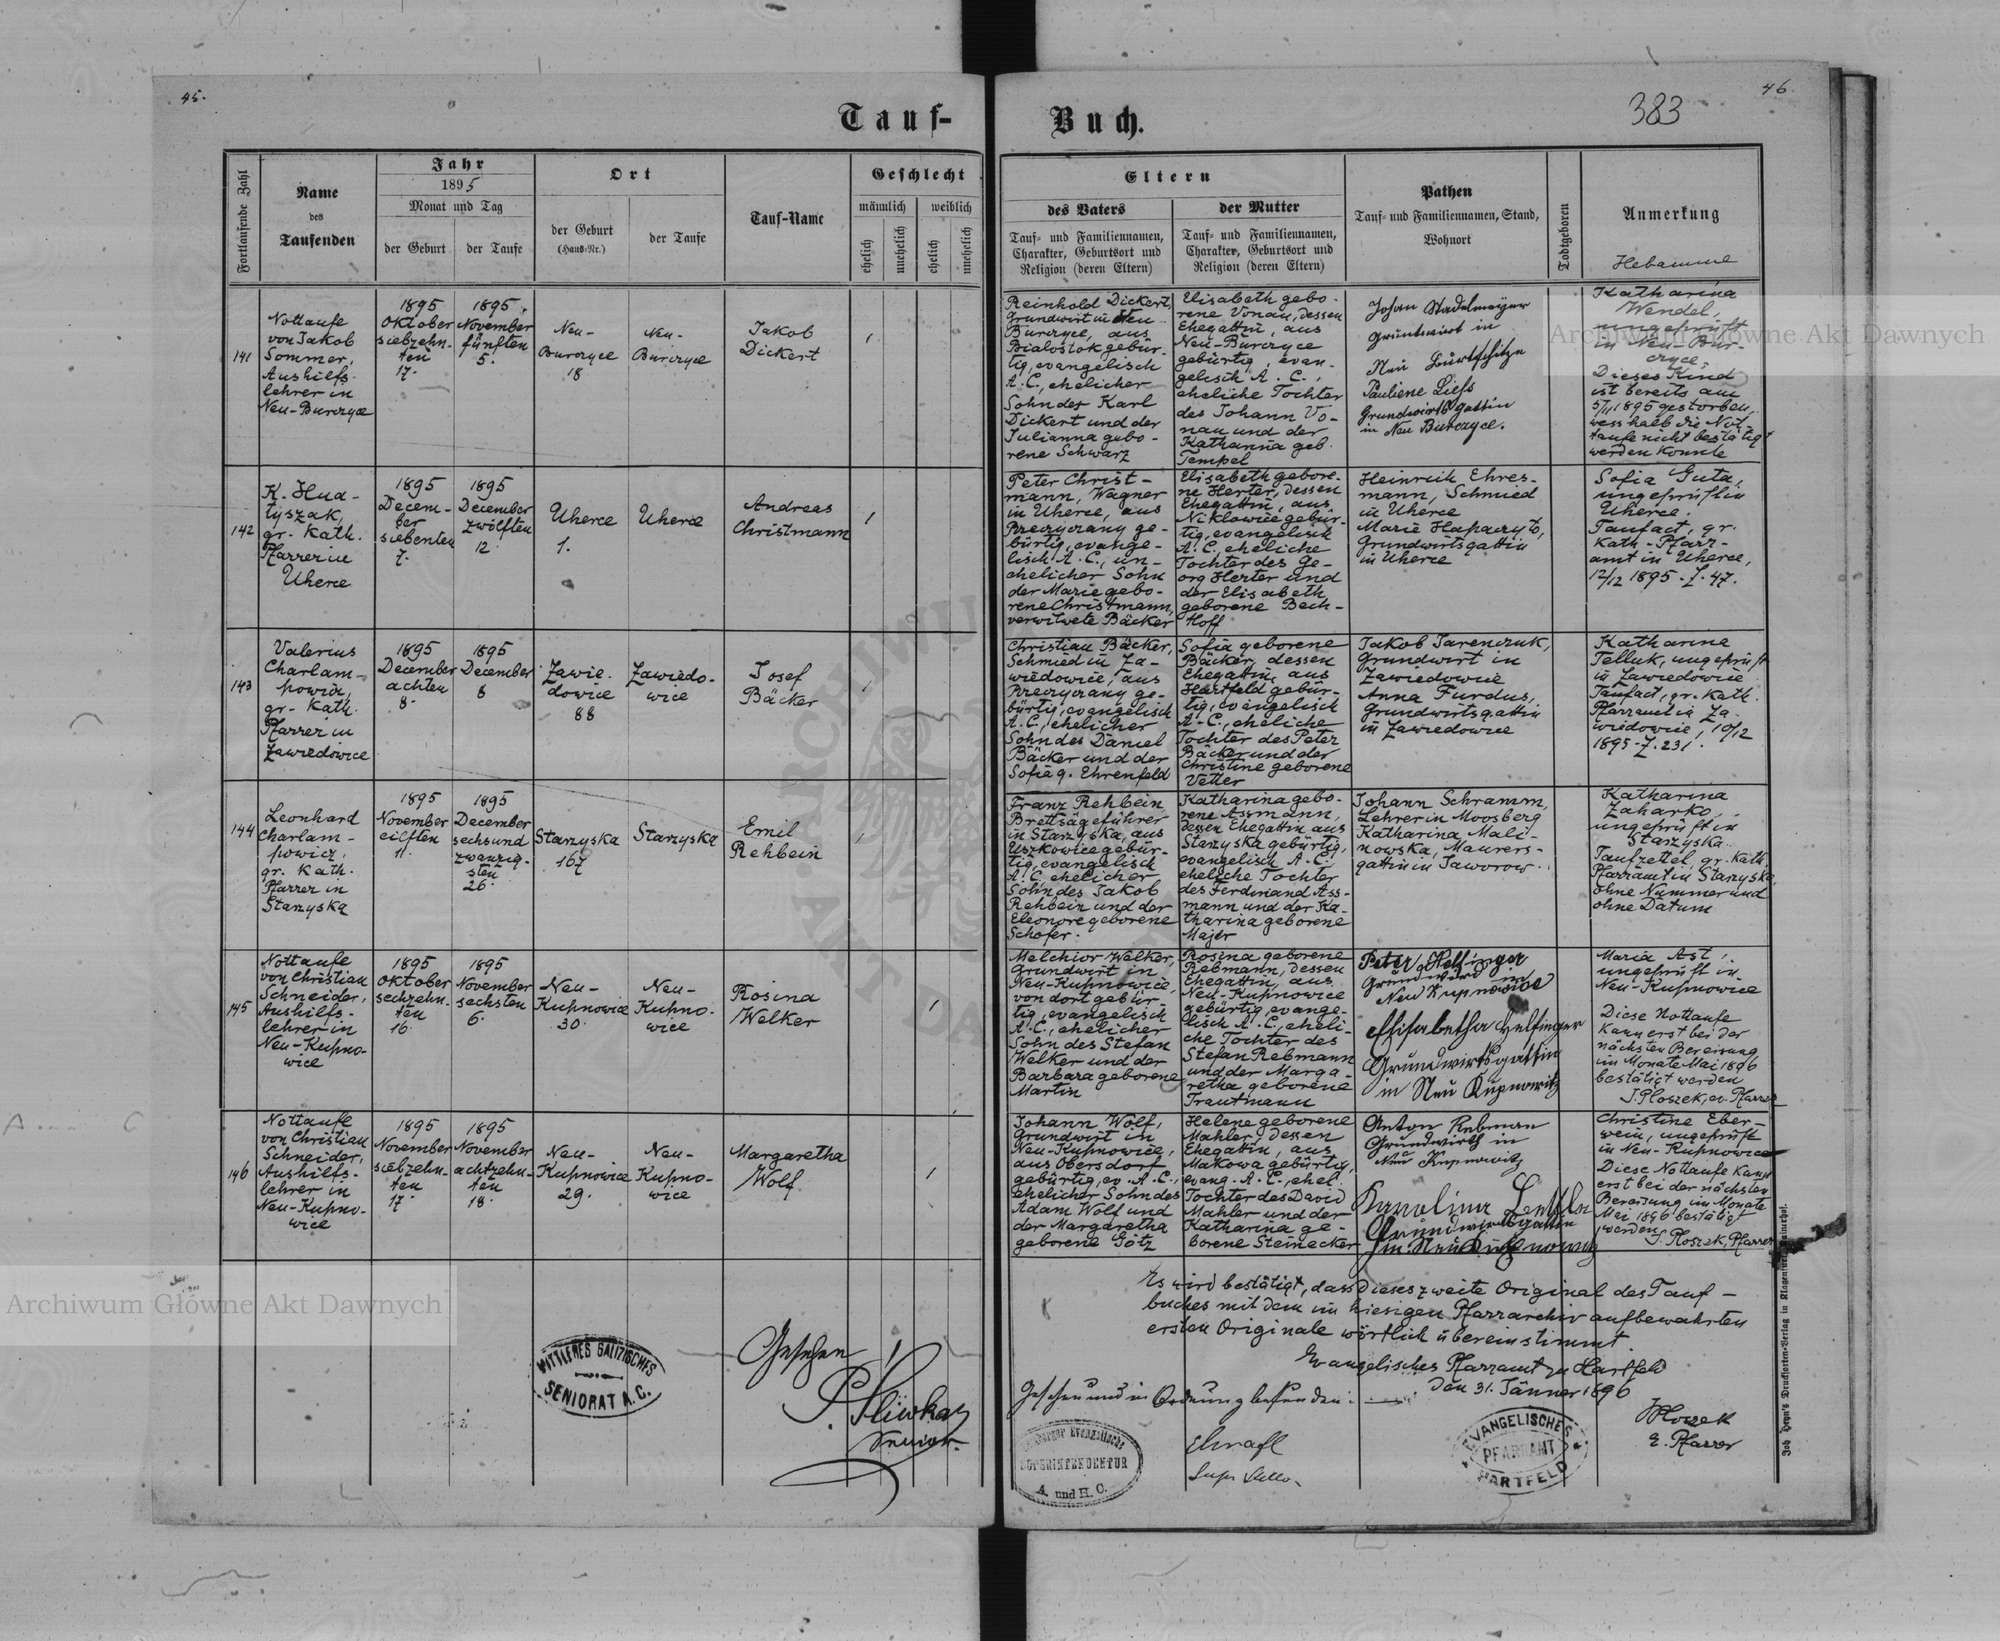 45.
Tauf-
Buch.
46
383
Fortlaufende Zahl
Name
des
Taufenden
Jahr
1895
Monat und Tag
der Geburt
der Taufe
Ort
der Geburt
(Haus-Nr.)
der Taufe
Tauf-Name
Geschlecht
männlich
weiblich
ehelich
unehelich
ehelich
unehelich
Eltern
des Vaters
Tauf- und Familiennamen,
Charakter, Geburtsort und
Religion (deren Eltern)
der Mutter
Tauf- und Familiennamen,
Charakter, Geburtsort und
Religion (deren Eltern)
Pathen
Tauf- und Familiennamen, Stand,
Wohnort
Todtgeboren
Anmerkung
Hebamme
141
Nottaufe
von Jakob
Sommer,
Aushilfs-
lehrer in
Neu-Burczyce
1895
Oktober
siebzehn-
ten
17.
1895
November
fünften
5.
Neu-
Burczyce
18
Neu-
Burczyce
Jakob
Dickert
1
Reinhold Dickert,
Grundwirt in Neu-
Burczyce, aus
Bialostok gebür-
tig, evangelisch
A. C., ehelicher
Sohn des Karl
Dickert und der
Julianna gebo-
rene Schwarz
Elisabeth gebo-
rene Vonau, dessen
Ehegattin, aus
Neu-Burczyce
gebürtig, evan-
gelisch A. C.,
eheliche Tochter
des Johann Vo-
nau und der
Katharina geb.
Tempel
Johan Stadelmeyer
gruntwirt in
Neu Burtschitze
Pauliene Liess
Grundwirts gattin
in Neu Burczyce.
Katharina
Wendel,
ungeprüft
in Neu-Bur-
czyce.
Dieses Kind
ist bereits am
5/11 1895 gestorben,
wesshalb die Not-
taufe nicht bestätigt
werden konnte
142
K. Hua-
tyszak,
gr. Kath.
Pfarrer in
Uherce
1895
Decem-
ber
siebenten
7.
1895
December
zwölften
12.
Uherce
1.
Uherce
Andreas
Christmann
1
Peter Christ-
mann, Wagner
in Uherce, aus
Przedrzymy ge-
bürtig, evange-
lisch A. C., un-
ehelicher Sohn
der Marie gebo-
rene Christmann,
verwitwete Bäcker
Elisabeth gebore-
ne Herter, dessen
Ehegattin, aus
Niklowice gebür-
tig, evangelisch
A. C., eheliche
Tochter des Ge-
org Herter und
der Elisabeth
geborene Bech-
Hoff
Heinrich Ehres-
mann, Schmied
in Uherce
Marie Hapaczyło,
Grundwirtsgattin
in Uherce
Sofia Guta,
ungeprüft in
Uherce.
Taufact, gr.
Kath. Pfarr-
amt in Uherce,
12/12 1895. Z. 47.
143
Valerius
Charlam-
powicz,
gr. Kath.
Pfarrer in
Zawiedowice
1895
December
achten
8.
1895
December
8
Zawie-
dowice
88
Zawiedo-
wice
Josef
Bäcker
1
Christian Bäcker,
Schmied in Za-
wiedowice, aus
ge-
bürtig, evangelisch
A. C., ehelicher
Sohn des Daniel
Bäcker und der
Sofia g. Ehrenfeld
Sofia geborene
Bäcker, dessen
Ehegattin, aus
Hartfeld gebür-
tig, evangelisch
A. C., eheliche
Tochter des Peter
Bäcker und der
Christine geborene
Vetter
Jakob Jarenczuk,
Grundwirt in
Zawiedowice
Anna Furdus,
Grundwirtsgattin
in Zawiedowice
Katharine
Telluk, ungeprüft
in Zawiedowice
Taufact, gr. Kath.
Pfarramt in Za-
wiedowice, 10/12
1895. Z. 231.
144
Leonhard
Charlam-
powicz,
gr. Kath.
Pfarrer in
Starzyska
1895
November
eilften
11.
1895
December
sechsund
zwanzig-
sten
26.
Starzyska
167
Starzyska
Emil
Rehbein
1
Franz Rehbein
Brettsägeführer
in Starzyska, aus
Uszkowice gebür-
tig, evangelisch
A. C. ehelicher
Sohn des Jakob
Rehbein und der
Eleonore geborene
Schofer.
Katharina gebo-
rene Assmann,
dessen Ehegattin aus
Starzyska gebürtig,
evangelisch A. C.,
eheliche Tochter
des Ferdinand Ass-
mann und der Ka-
tharina geborene
Majer
Johann Schramm,
Lehrer in Moosberg
Katharina Mali-
nowska, Maurers-
gattin in Jaworow.
Katharina
Zaharko,
ungeprüft in
Starzyska.
Taufzettel, gr. Kath.
Pfarramt in Starzyska,
ohne Nummer und
ohne Datum
145
Nottaufe
von Christian
Schneider,
Aushilfs-
lehrer in
Neu-Kupno-
wice
1895
Oktober
sechzehn-
ten
16.
1895
November
sechsten
6.
Neu-
Kupnowice
30.
Neu-
Kupno-
wice
Rosina
Welker
1
Melchior Welker,
Grundwirt in
Neu-Kupnowice,
von dort gebür-
tig, evangelisch
A. C., ehelicher
Sohn des Stefan
Welker und der
Barbara geborene
Martin
Rosina geborene
Rebmann, dessen
Ehegattin, aus
Neu-Kupnowice
gebürtig, evange-
lisch A. C., eheli-
che Tochter des
Stefan Rebmann
und der Marga-
retha geborene
Trautmann
Peter Helfinger
Grundwird in
Neu Kupnowice
Elisabetha Helfinger
Grundwirtsgattin
in Neu Kupnowitz
Maria Ast,
ungeprüft in
Neu-Kupnowice
Diese Nottaufe
kann erst bei der
nächsten Bereisung
im Monate Mai 1896
bestätigt werden
J. Ploszek, ev. Pfarrer
146
Nottaufe
von Christian
Schneider,
Aushilfs-
lehrer in
Neu-Kupno-
wice
1895
November
siebzehn-
ten
17.
1895
November
achtzehn-
ten
18.
Neu-
Kupnowice
29.
Neu-
Kupno-
wice
Margaretha
Wolf
1
Johann Wolf,
Grundwirt in
Neu-Kupnowice,
aus Obersdorf
gebürtig, ev. A. C.,
ehelicher Sohn des
Adam Wolf und
der Margaretha
geborene Götz
Helene geborene
Mahler, dessen
Ehegattin, aus
Makowa gebürtig,
evang. A. C., ehel.
Tochter des David
Mahler und der
Katharina ge-
borene Steinecker
Anton Rebman
Grundwirth in
Neu Kupnowitz
Karolina
Grundwirtsgattin
in Neu Kupnowitz
Christine Eber-
wein, ungeprüft
in Neu-Kupnowice
Diese Nottaufe kann
erst bei der nächsten
Bereisung im Monate
Mai 1896 bestätigt
werden
J. Ploszek, Pfarrer
Es wird bestätigt, dass dieses zweite Original des Tauf-
buches mit dem im hiesigen Pfarrarchiv aufbewahrten
ersten Originale wörtlich übereinstimmt.
Evangelisches Pfarramt zu Hartfeld
den 31. Jänner 1896
Ploszek
E. Pfarrer
EVANGELISCHES
PFARRAMT
HARTFELD
Gesehen und in Ordnung befunden:
SUPERINTENDENTUR
A. und H. C.
Gesehen
Senior.
MITTLERES GALIZISCHES
SENIORAT A. C.
Joh. Heyn's Drucksorten-Verlag in Klagenfurt
Archiwum Główne Akt Dawnych
Archiwum Główne Akt Dawnych